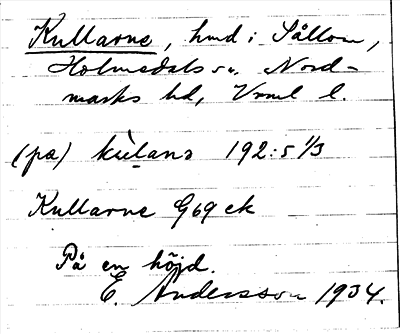 Kullarne, hmd i Sållom,
Holmedals sn. Nord-
marks hd, Vrml l.
(pa) kùlanə 192:5 1/3
Kullarne G69 ek
På en höjd.
E. Andersson 1934.